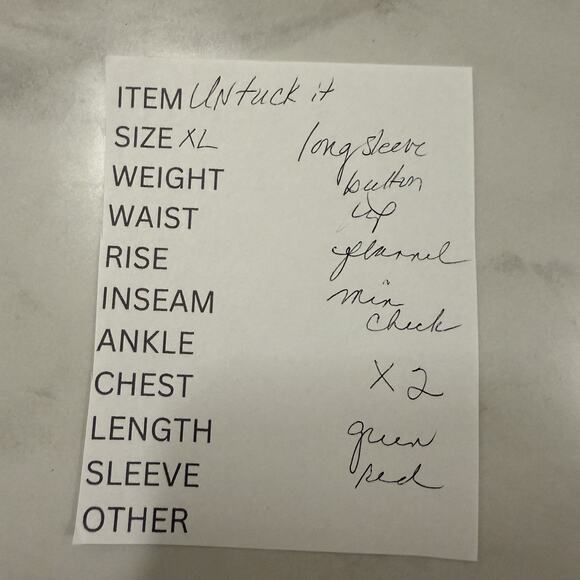 ITEM UNtuck it
SIZE XL long sleeve
WEIGHT button
WAIST up
RISE flannel
INSEAM min
check
ANKLE
CHEST X 2
LENGTH green
SLEEVE red
OTHER